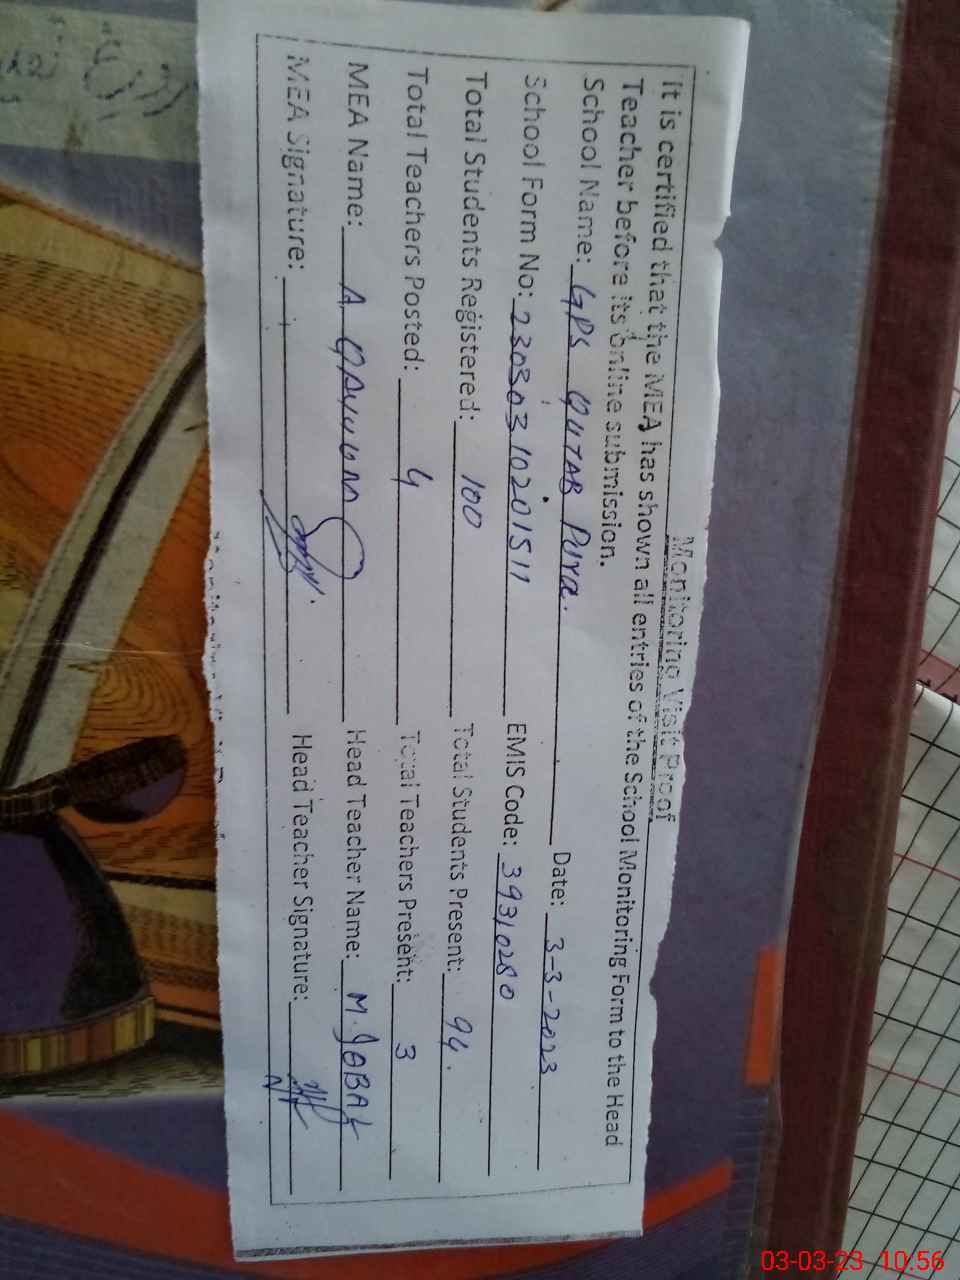 Monitoring Visit Proof
It is certified that the MEA has shown all entries of the School Monitoring Form to the Head
Teacher before its online submission.
School Name: GPS QUTAB PURA. Date: 3-3-2023
School Form No: 23030310201511 EMIS Code: 39310280
Total Students Registered: 100 Total Students Present: 94.
Total Teachers Posted: 4 Total Teachers Present: 3
MEA Name: A QAYUUM Head Teacher Name: M. IQBAL
MEA Signature: Head Teacher Signature:
03-03-23 10:56